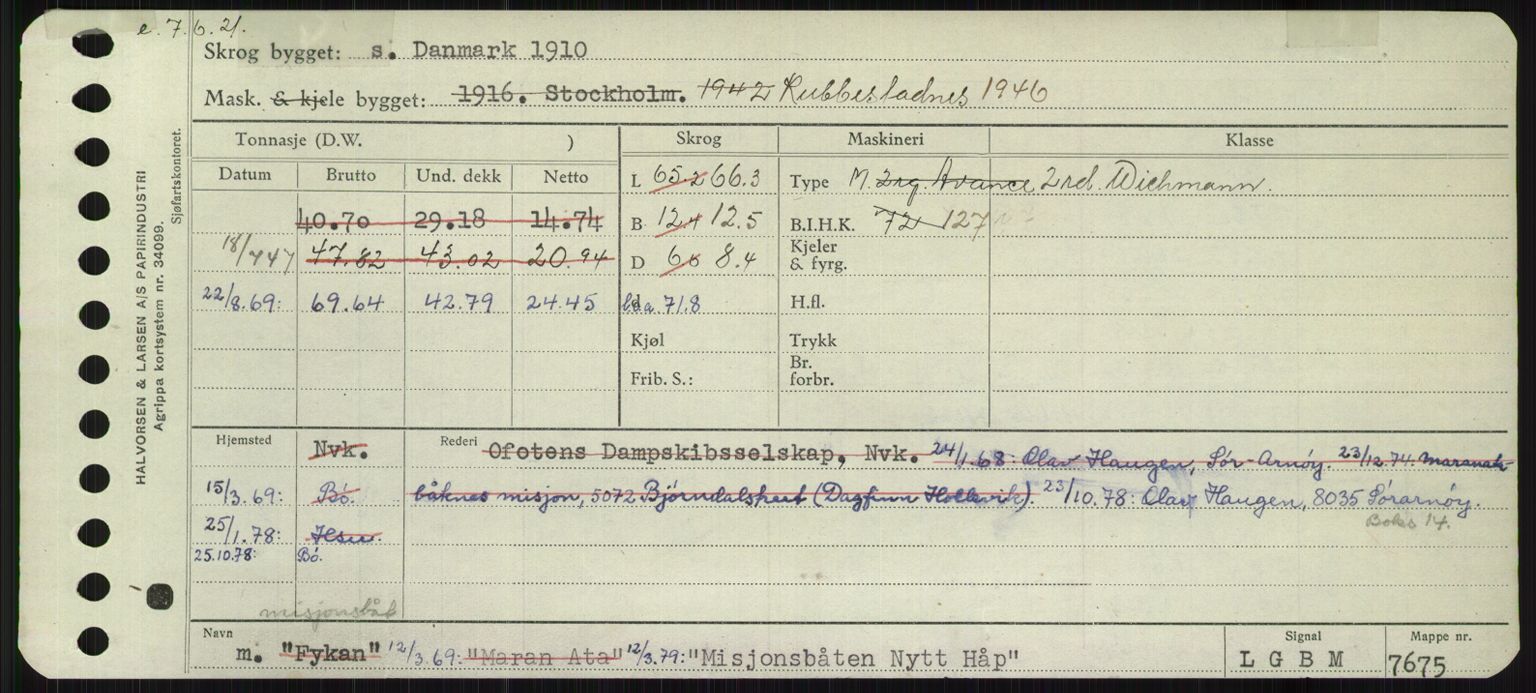 e. 7.6.21.
Skrog bygget: s. Danmark 1910
Mask. & kjele bygget: 1916. Stockholm. 1942 Rubbestadnes 1946
Tonnasje (D.W. ) Skrog Maskineri Klasse
Datum Brutto Und. dekk Netto L 65.2 66.3 Type M. 2rg. Avance 2rd. Wichmann.
40.70 29.18 14.74 B 12.4 12.5 B.I.H.K. 72 127
18/7 47 47.82 43.02 20.94 D 6.6 8.4 Kjeler & fyrg.
22/8.69: 69.64 42.79 24.45 lda 71.8 H.fl.
Kjøl Trykk
Frib. S.: Br. forbr.
Hjemsted Nvk. Rederi Ofotens Dampskibsselskap, Nvk. 24/1.68: Olav Haugen, Sør-Arnøy. 23/12.74: Maranata-
15/3.69: Bö. båknes misjon, 5072 Björndalspeet (Dagfinn Hollevik). 23/10.78: Olav Haugen, 8035 Sørarnøy.
Boks 14.
25/1.78: Hsu.
25.10.78: Bö.
misjonsbåt
Navn Signal Mappe nr.
m. "Fykan" 12/3.69: "Maran Ata" 12/3.79: "Misjonsbåten Nytt Håp" L G B M 7675
HALVORSEN & LARSEN A/S PAPIRINDUSTRI
Agrippa kortsystem nr. 34099.
Sjøfartskontoret.